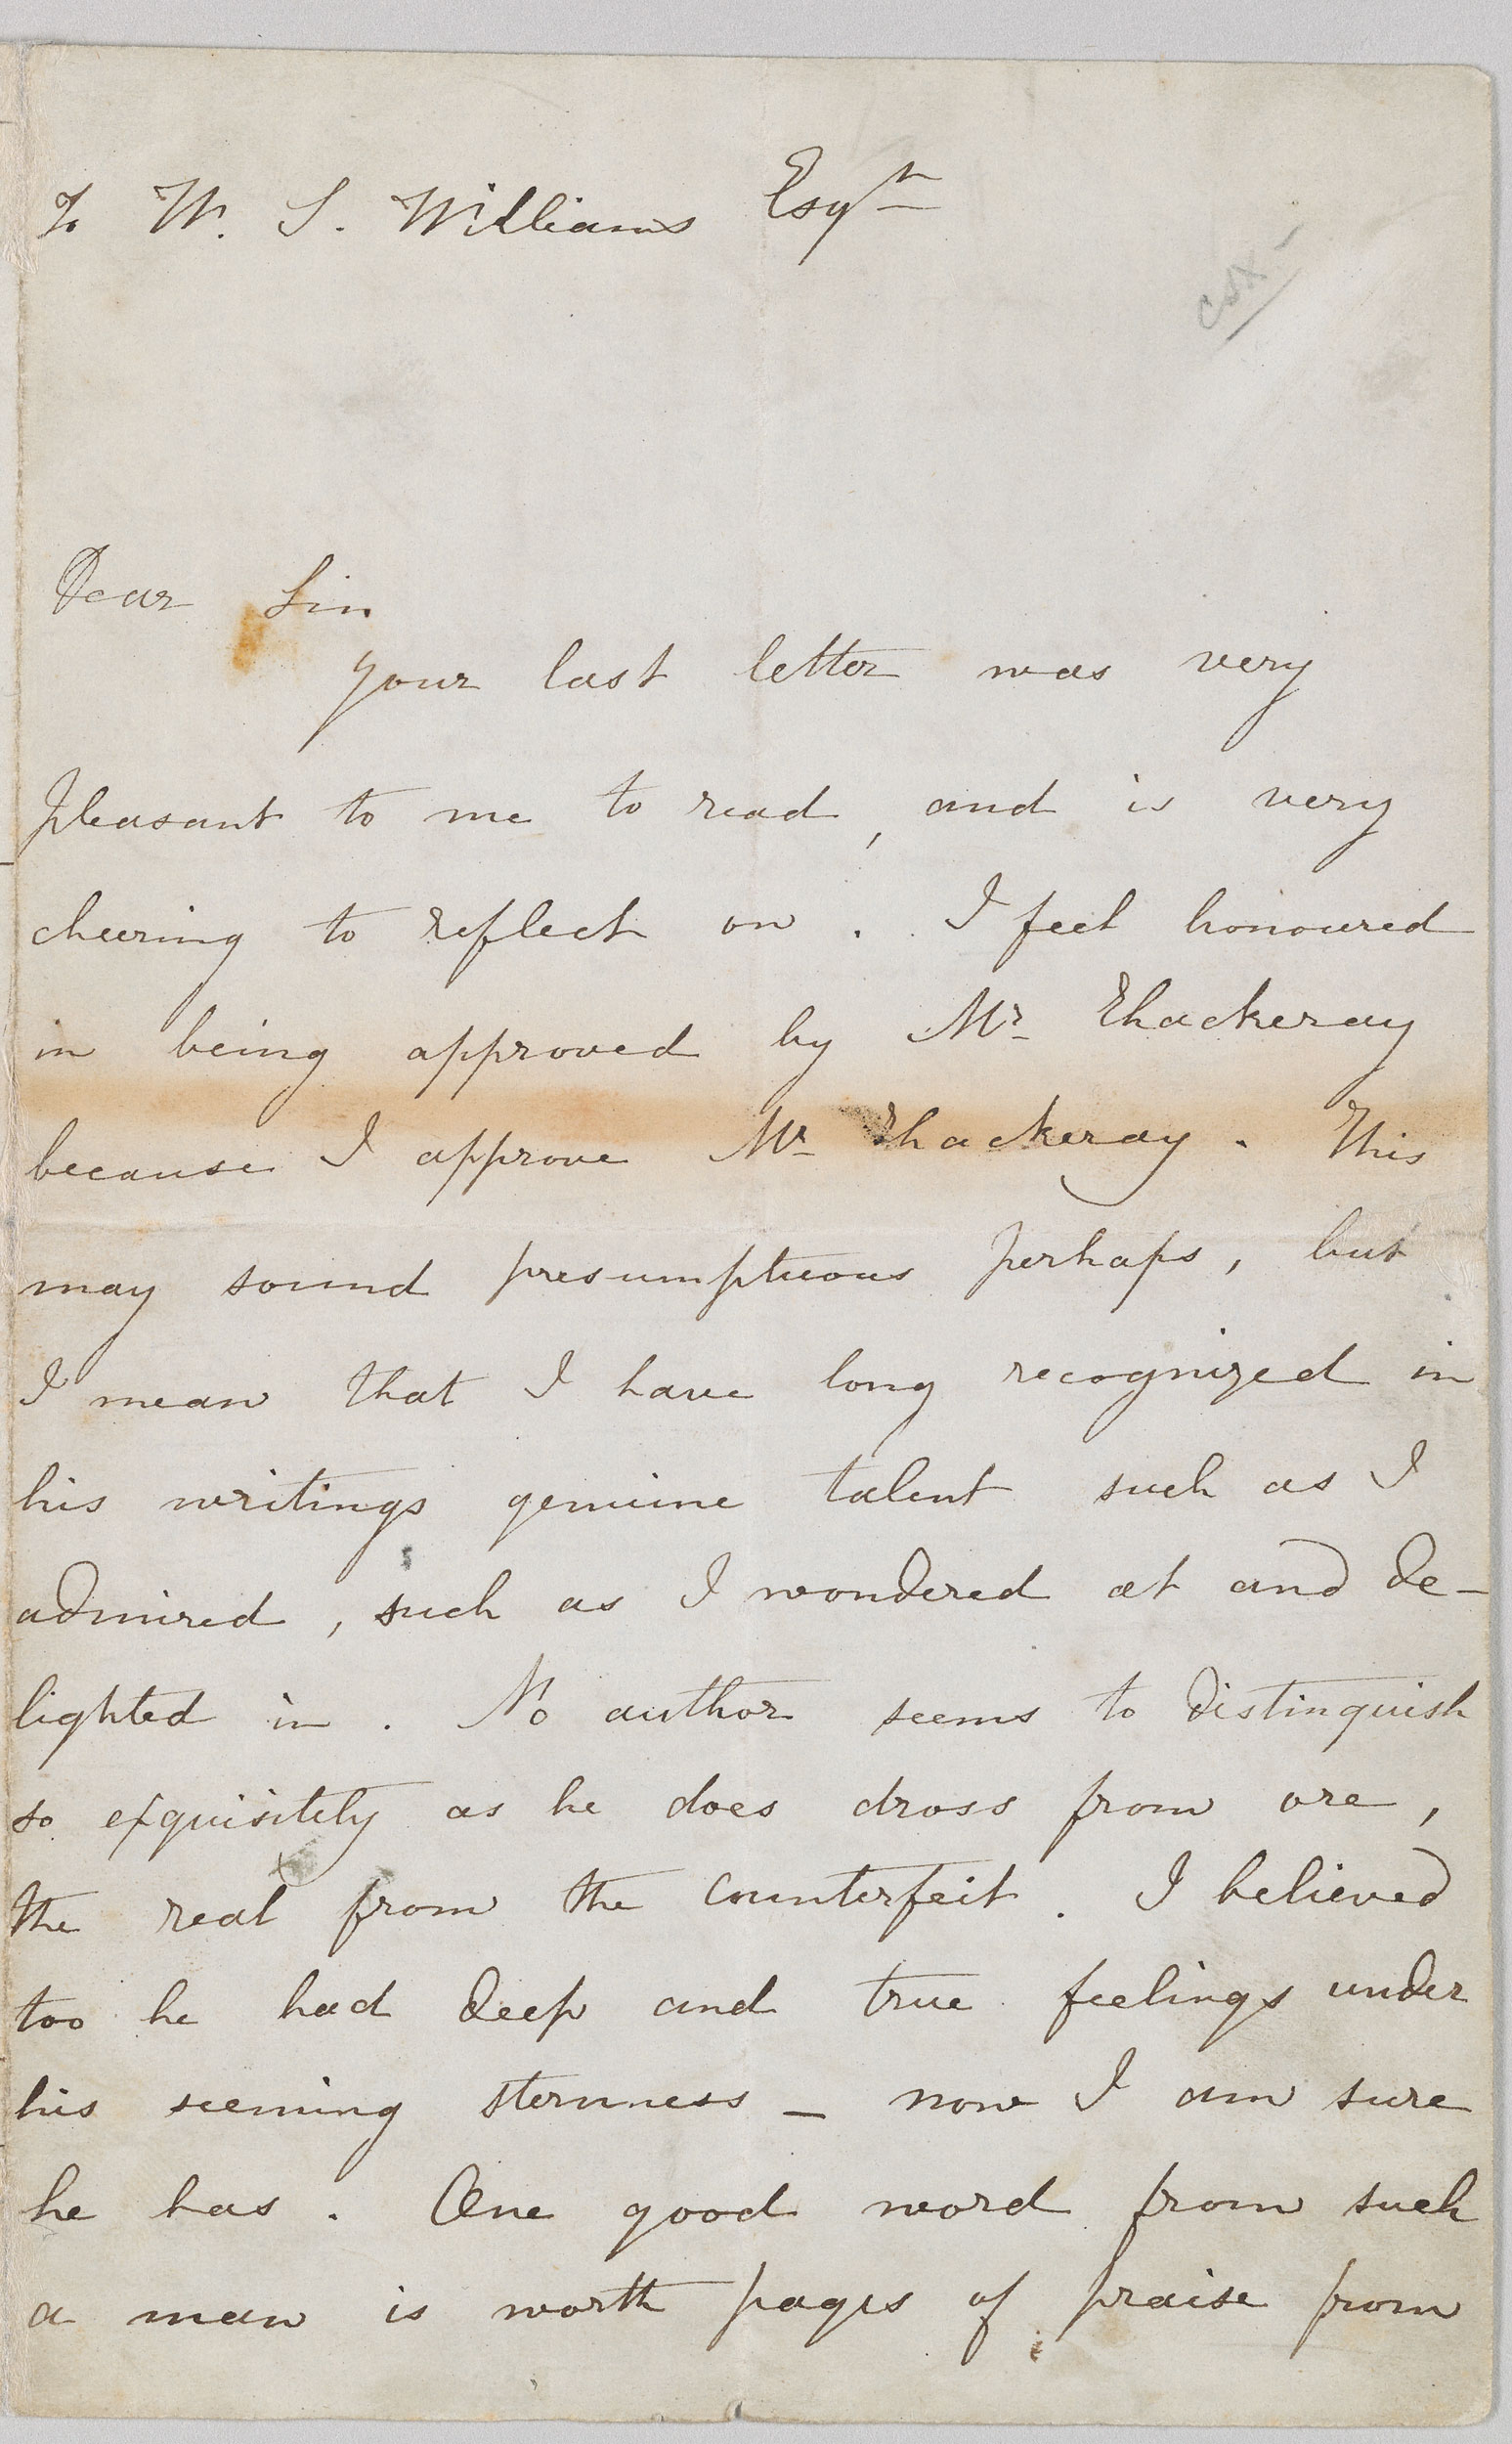 To W. S. Williams Esqr
Dear Sir
Your last letter was very
pleasant to me to read, and is very
cheering to reflect on. I feel honoured
in being approved by Mr Thackeray
because I approve Mr Thackeray. This
may sound presumptuous perhaps, but
I mean that I have long recognized in
his writings genuine talent such as I
admired, such as I wondered at and de-
lighted in. No author seems to distinguish
so exquisitely as he does dross from ore,
the real from the counterfeit. I believed
too he had deep and true feelings under
his seeming sternness - now I am sure
he has. One good word from such
a man is worth pages of praise from